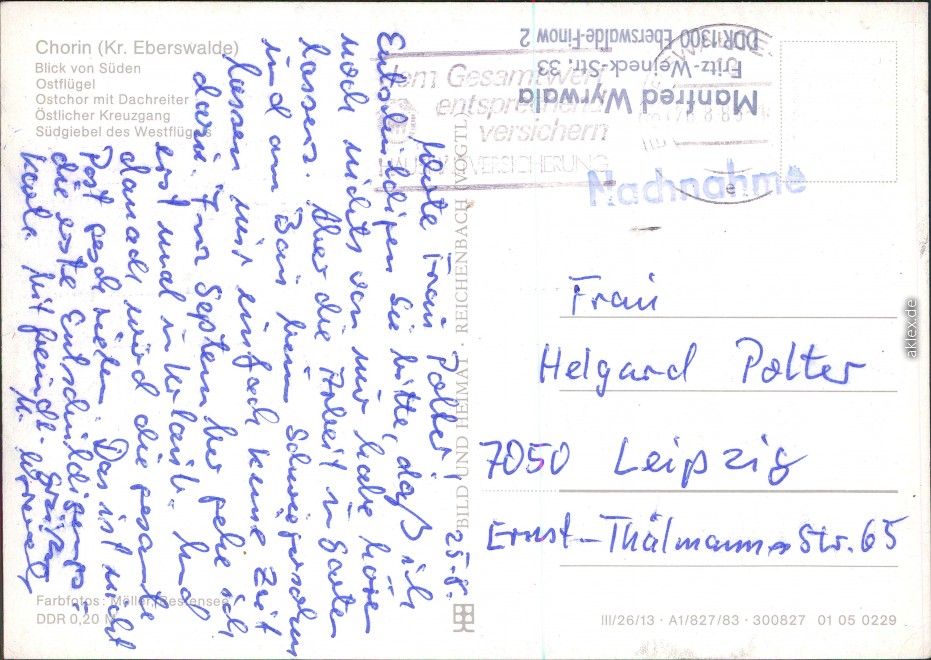 Chorin (Kr. Eberswalde)
Blick von Süden
Ostflügel
Ostchor mit Dachreiter
Östlicher Kreuzgang
Südgiebel des Westflügels
25.8.
Werte Frau Polter!
Entschuldigen Sie bitte, daß ich
noch nichts von mir habe hören
lassen. Aber die Arbeit im Garten
und am Bau beim Schwiegersohn
lassen mir einfach keine Zeit
dazu. Im September gehe ich
erst mal in Urlaub. Und
danach wird die gesamte
Post geschrieben. Das ist nicht
die erste Entschuldigungs-
karte. Mit freundl. Grüßen
M.
Farbfotos: Müller, Bestensee
DDR 0,20 M
BILD UND HEIMAT · REICHENBACH (VOGTL)
Manfred Wyrwala
Fritz-Weineck-Str. 33
DDR 1300 Eberswalde-Finow 2
dem Gesamtwert
entsprechend
versichern
HAUSRATVERSICHERUNG
Nachnahme
Frau
Helgard Polter
7050 Leipzig
Ernst-Thälmann-Str. 65
III/26/13 · A1/827/83 · 300827 01 05 0229
aklex.de